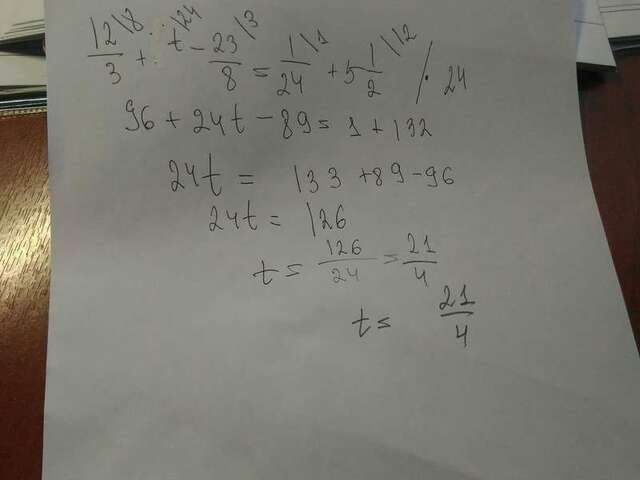 12/3 \8 + t \24 - 23/8 \3 = 1/24 \1 + 5 1/2 \12 / · 24
96 + 24t - 89 = 1 + 132
24t = 133 + 89 - 96
24t = 126
t = 126/24 = 21/4
t = 21/4